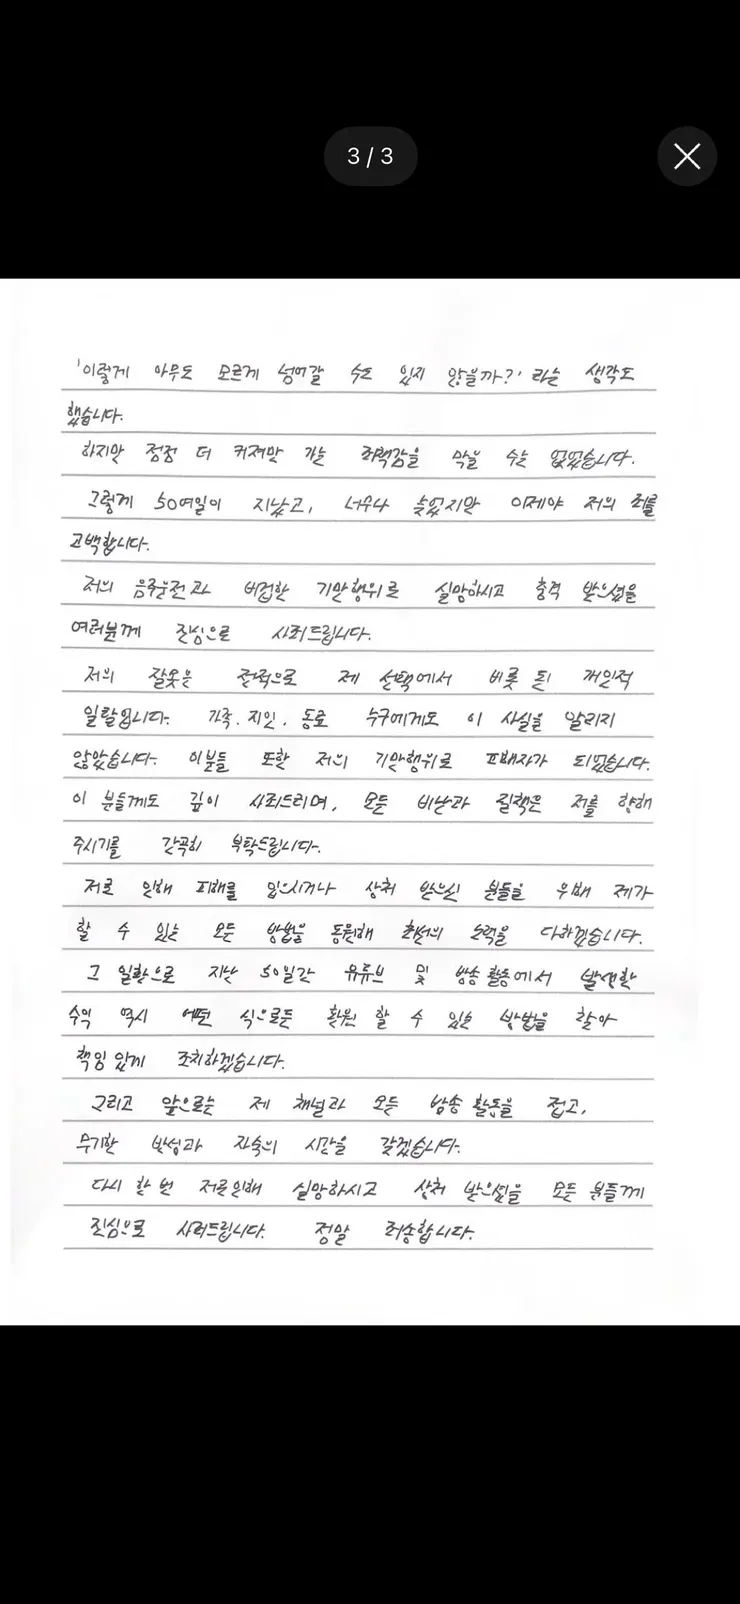 3 / 3
'이렇게 아무도 모르게 넘어갈 수도 있지 않을까?' 라는 생각도
했습니다.
하지만 점점 더 커져만 가는 죄책감을 막을 수는 없었습니다.
그렇게 50여일이 지났고, 너무나 늦었지만 이제야 저의 죄를
고백합니다.
저의 음주운전과 비겁한 기만행위로 실망하시고 충격 받으셨을
여러분께 진심으로 사죄드립니다.
저의 잘못은 전적으로 제 선택에서 비롯 된 개인적
일탈입니다. 가족, 지인, 동료 누구에게도 이 사실을 알리지
않았습니다. 이분들 또한 저의 기만행위로 피해자가 되었습니다.
이 분들께도 깊이 사죄드리며, 모든 비난과 질책은 저를 향해
주시기를 간곡히 부탁드립니다.
저로 인해 피해를 입으시거나 상처 받으신 분들을 위해 제가
할 수 있는 모든 방법을 동원해 최선의 노력을 다하겠습니다.
그 일환으로 지난 50일간 유튜브 및 방송 활동에서 발생한
수익 역시 어떤 식으로든 환원 할 수 있는 방법을 찾아
책임 있게 조치하겠습니다.
그리고 앞으로는 제 채널과 모든 방송 활동을 접고,
무기한 반성과 자숙의 시간을 갖겠습니다.
다시 한 번 저로인해 실망하시고 상처 받으셨을 모든 분들께
진심으로 사죄드립니다. 정말 죄송합니다.